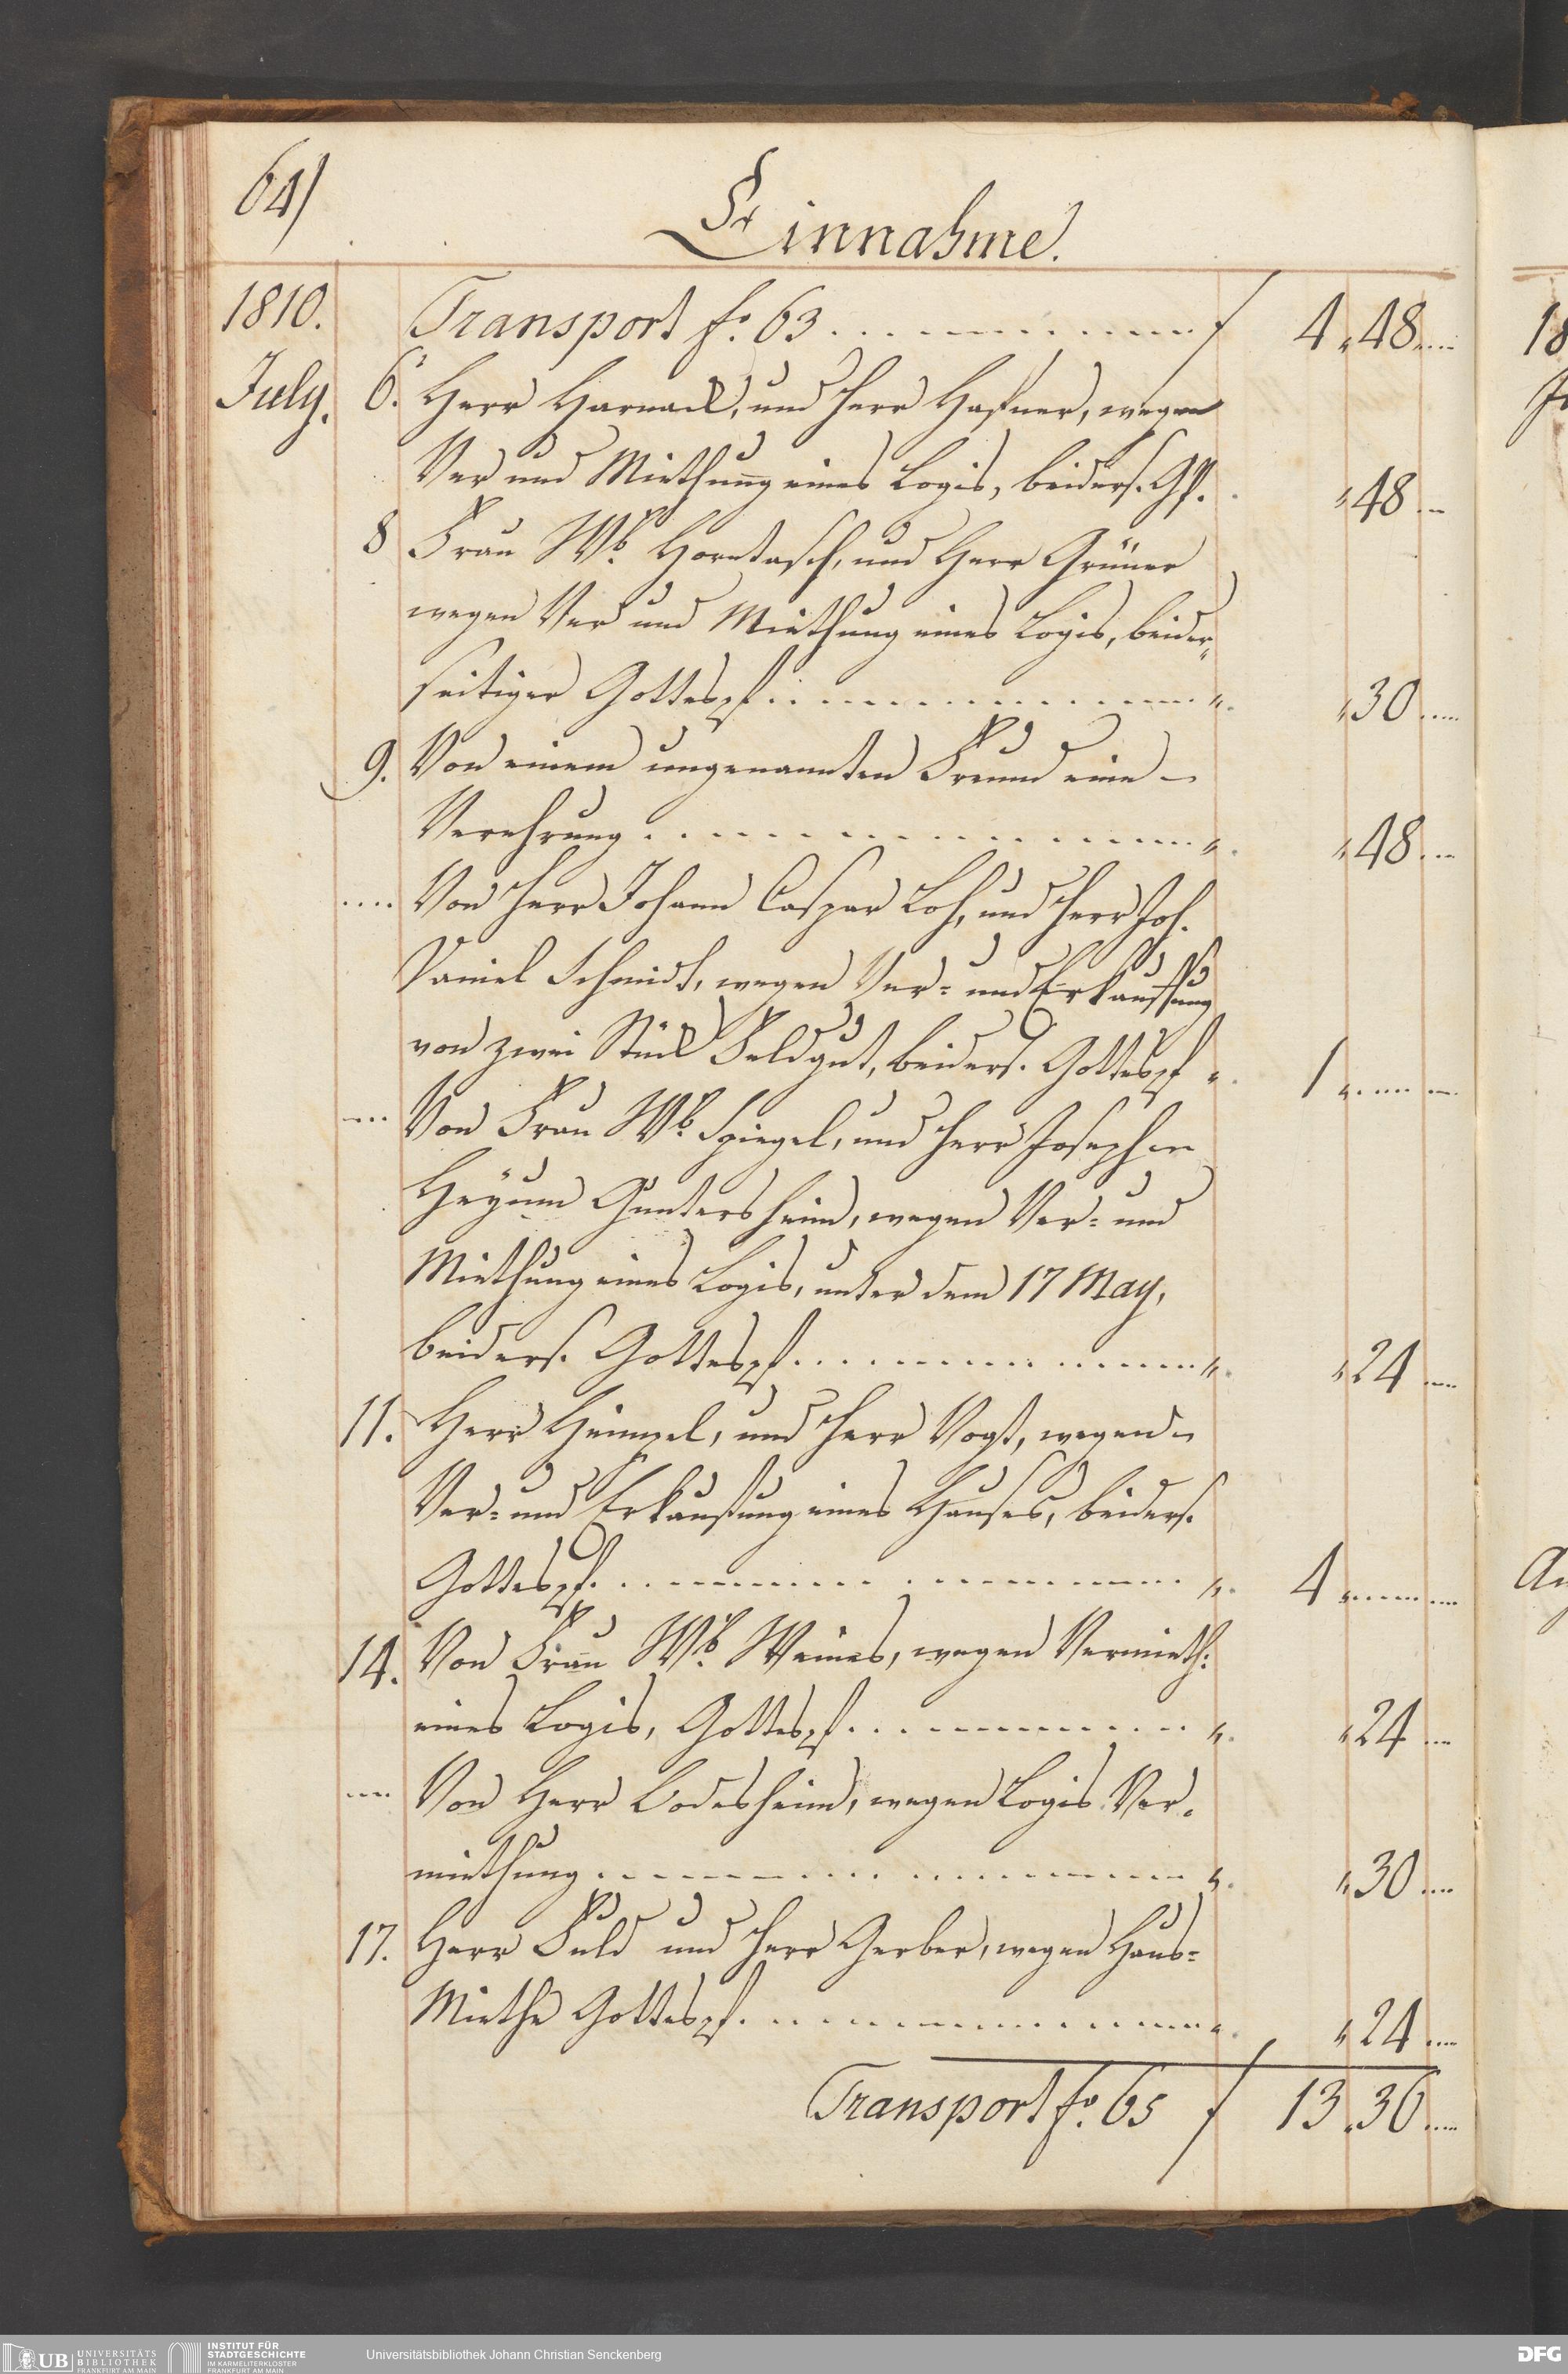 64)
Einnahme.
1810. Transport fo. 63 . . . . . f 4 „ 48 ....
July. 6. Herr Harnack, und Herr Hafner, wegen
Ver und Miethung eines Logis, beiders. Gpf. . „ 48 ...
8 Frau Wb. Horntasch, und Herr Grüner
wegen Ver und Miethung eines Logis, beider„
seitiger Gottespf . . . . . „ 30 .....
9. Von einem ungenannten Freund eine
Verehrung . . . . . „ 48 ...
.... Von Herr Johann Caspar Loh, und Herr Joh.
Daniel Schmidt, wegen Ver= und Erkauffung
von zwei Stück Feldgut, beiders. Gottespf „. 1 „ .....
.... Von Frau Wb. Spiegel, und Herr Joseph
Heyum Guntersheim, wegen Ver= und
Miethung eines Logis, unter dem 17 May,
beiders. Gottespf . . . . . „ 24 ....
11. Herr Hümpel, und Herr Vogt, wegen
Ver= und Erkaufung eines Hauses, beiders.
Gottespf . . . . . „. 4 „ .....
14. Von Frau Wb. Weines, wegen Vermieth:
eines Logis, Gottespf . . . . . „ 24 ....
.... Von Herr Bodesheim, wegen Logis Ver„
miethung . . . . . „ 30 ....
17. Herr Fuld und Herr Gerber, wegen Haus=
Miethe Gottespf . . . . . „ 24 ....
Transport fo. 65 f 13 „ 36 ....
18
UB UNIVERSITÄTS
BIBLIOTHEK
FRANKFURT AM MAIN
INSTITUT FÜR
STADTGESCHICHTE
IM KARMELITERKLOSTER
FRANKFURT AM MAIN
Universitätsbibliothek Johann Christian Senckenberg
DFG